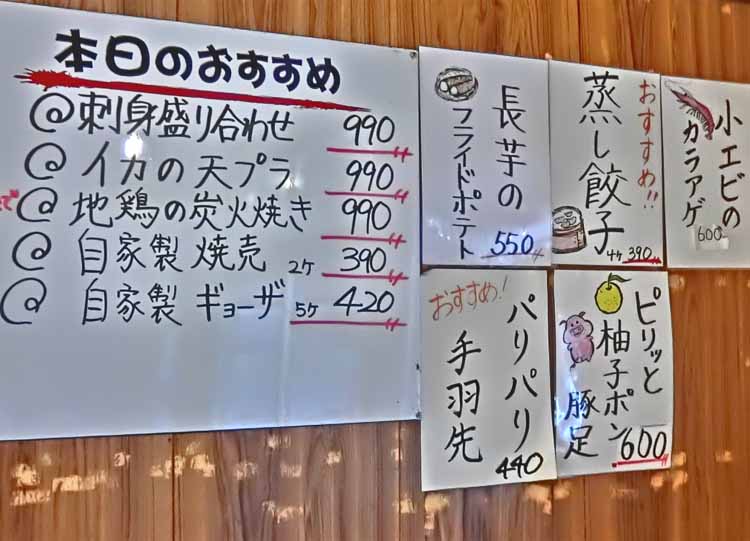 本日のおすすめ
@刺身盛り合わせ 990
@イカの天プラ 990
@地鶏の炭火焼き 990
@自家製焼売 2ケ 390
@自家製ギョーザ 5ケ 420
長芋の
フライドポテト
550
おすすめ!!
蒸し餃子
4ケ 390
小エビの
カラアゲ
600
おすすめ!
パリパリ
手羽先
440
ピリッと
柚子ポン
豚足
600